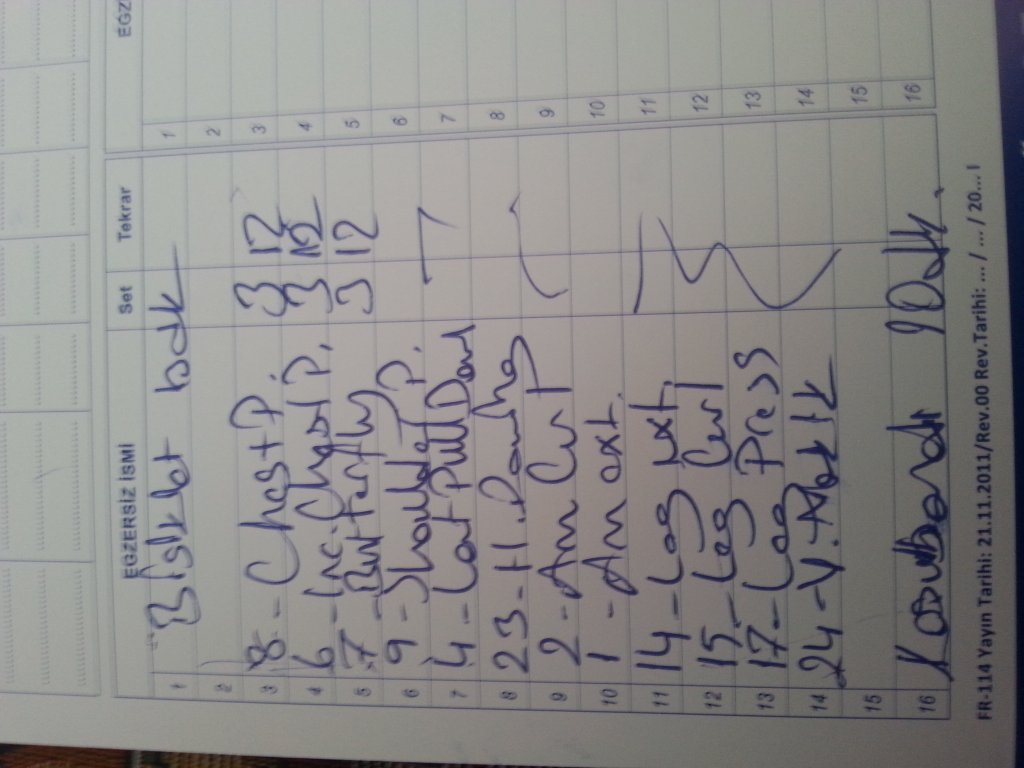 EGZERSİZ İSMİ Set Tekrar
1 Bisiklet
2
3 8 - Chest P. 3 12
4 6 - Inc. Chest P. 3 12
5 7 - Butterfly 3 12
6 9 - Shoulder P.
7 4 - Lat Pull Down
8 23 - H.
9 2 - Arm Curl
10 1 - Arm ext.
11 14 - Leg ext.
12 15 - Leg Curl
13 17 - Leg Press
14 24 -
15
16 Koşu Bandı
EGZ
1
2
3
4
5
6
7
8
9
10
11
12
13
14
15
16
FR-114 Yayın Tarihi: 21.11.2011/Rev.00 Rev.Tarihi: ... / ... / 20... I